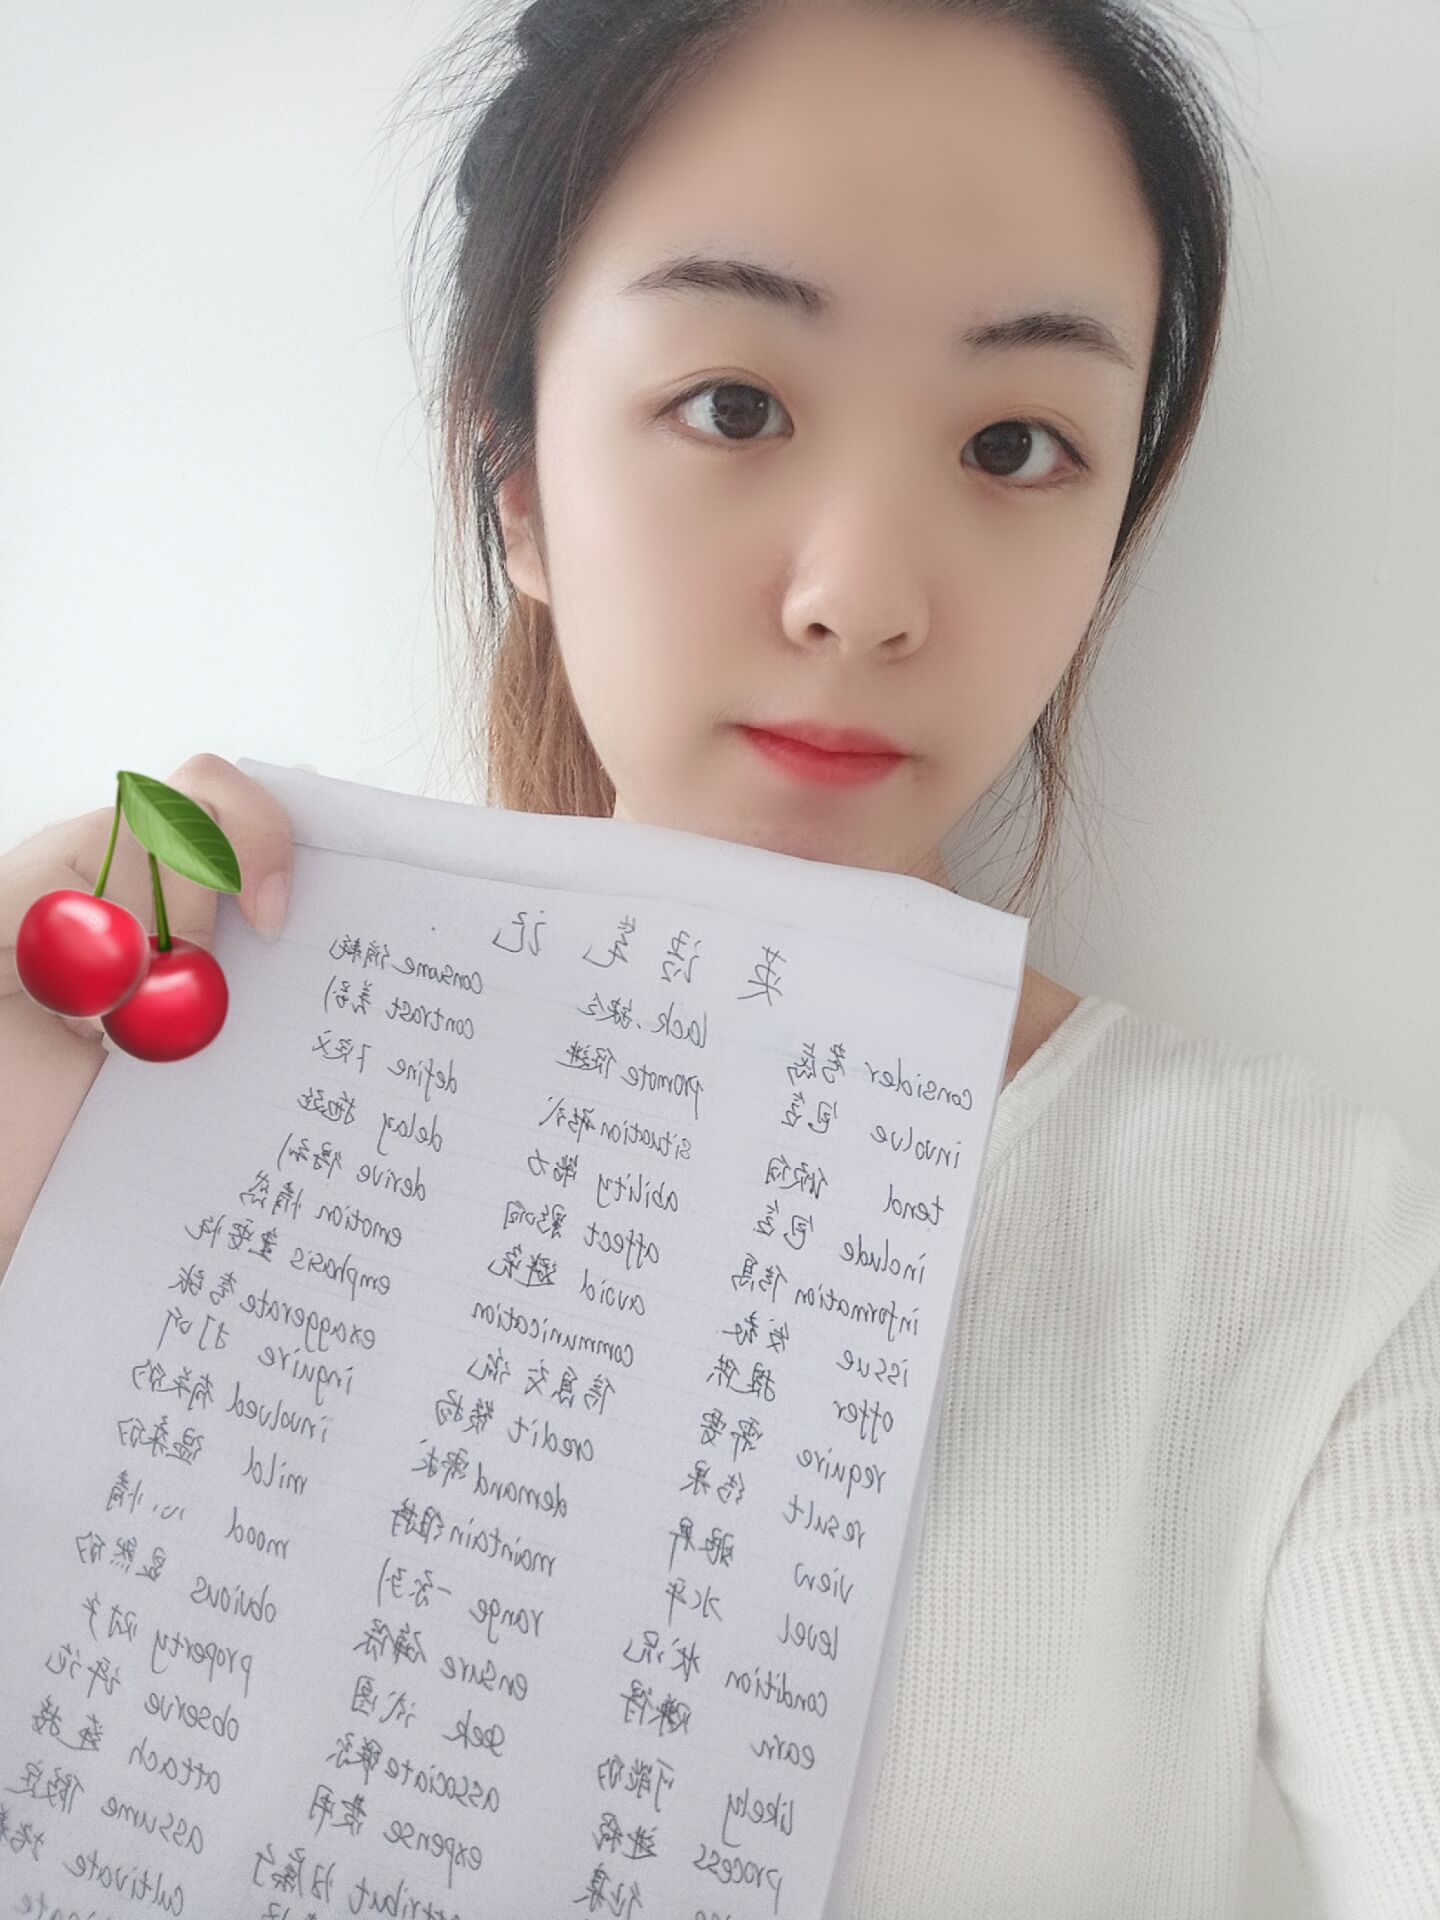 英语笔记
consider 考虑
involve 包括
tend 倾向
include 包括
information 信息
issue
offer 提供
require 需要
result 结果
view 眼界
level 水平
condition 状况
earn 赚得
likely 可能的
process 进程
lack 缺乏
promote 促进
situation 形式
ability 能力
affect 影响
avoid 避免
communication
信息交流
credit 赞扬
demand 需求
maintain 维持
range 一系列
ensure 确保
seek 试图
associate 联系
expense 费用
归属于
consume 消耗
contrast 差别
define 下定义
delay 拖延
derive 得到
emotion 情感
emphasis 重要性
exaggerate 夸张
inquire 打听
involved 有关的
mild 温柔的
mood 心情
obvious 显然的
property 财产
observe 评论
attach 连接
assume 假定
cultivate